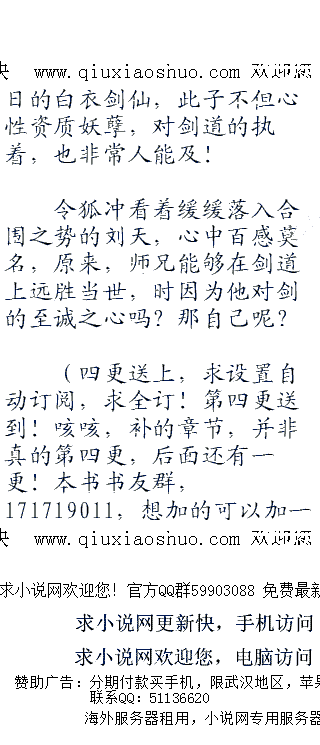 快 www.qiuxiaoshuo.com 欢迎您
日的白衣剑仙，此子不但心
性资质妖孽，对剑道的执
着，也非常人能及！
令狐冲看着缓缓落入合
围之势的刘天，心中百感莫
名，原来，师兄能够在剑道
上远胜当世，时因为他对剑
的至诚之心吗？那自己呢？
（四更送上，求设置自
动订阅，求全订！第四更送
到！咳咳，补的章节，并非
真的第四更，后面还有一
更！本书书友群，
171719011，想加的可以加一
快 www.qiuxiaoshuo.com 欢迎您
求小说网欢迎您！官方QQ群59903088 免费最新
求小说网更新快，手机访问
求小说网欢迎您，电脑访问
赞助广告：分期付款买手机，限武汉地区，苹果
联系QQ：51136620
海外服务器租用，小说网专用服务器